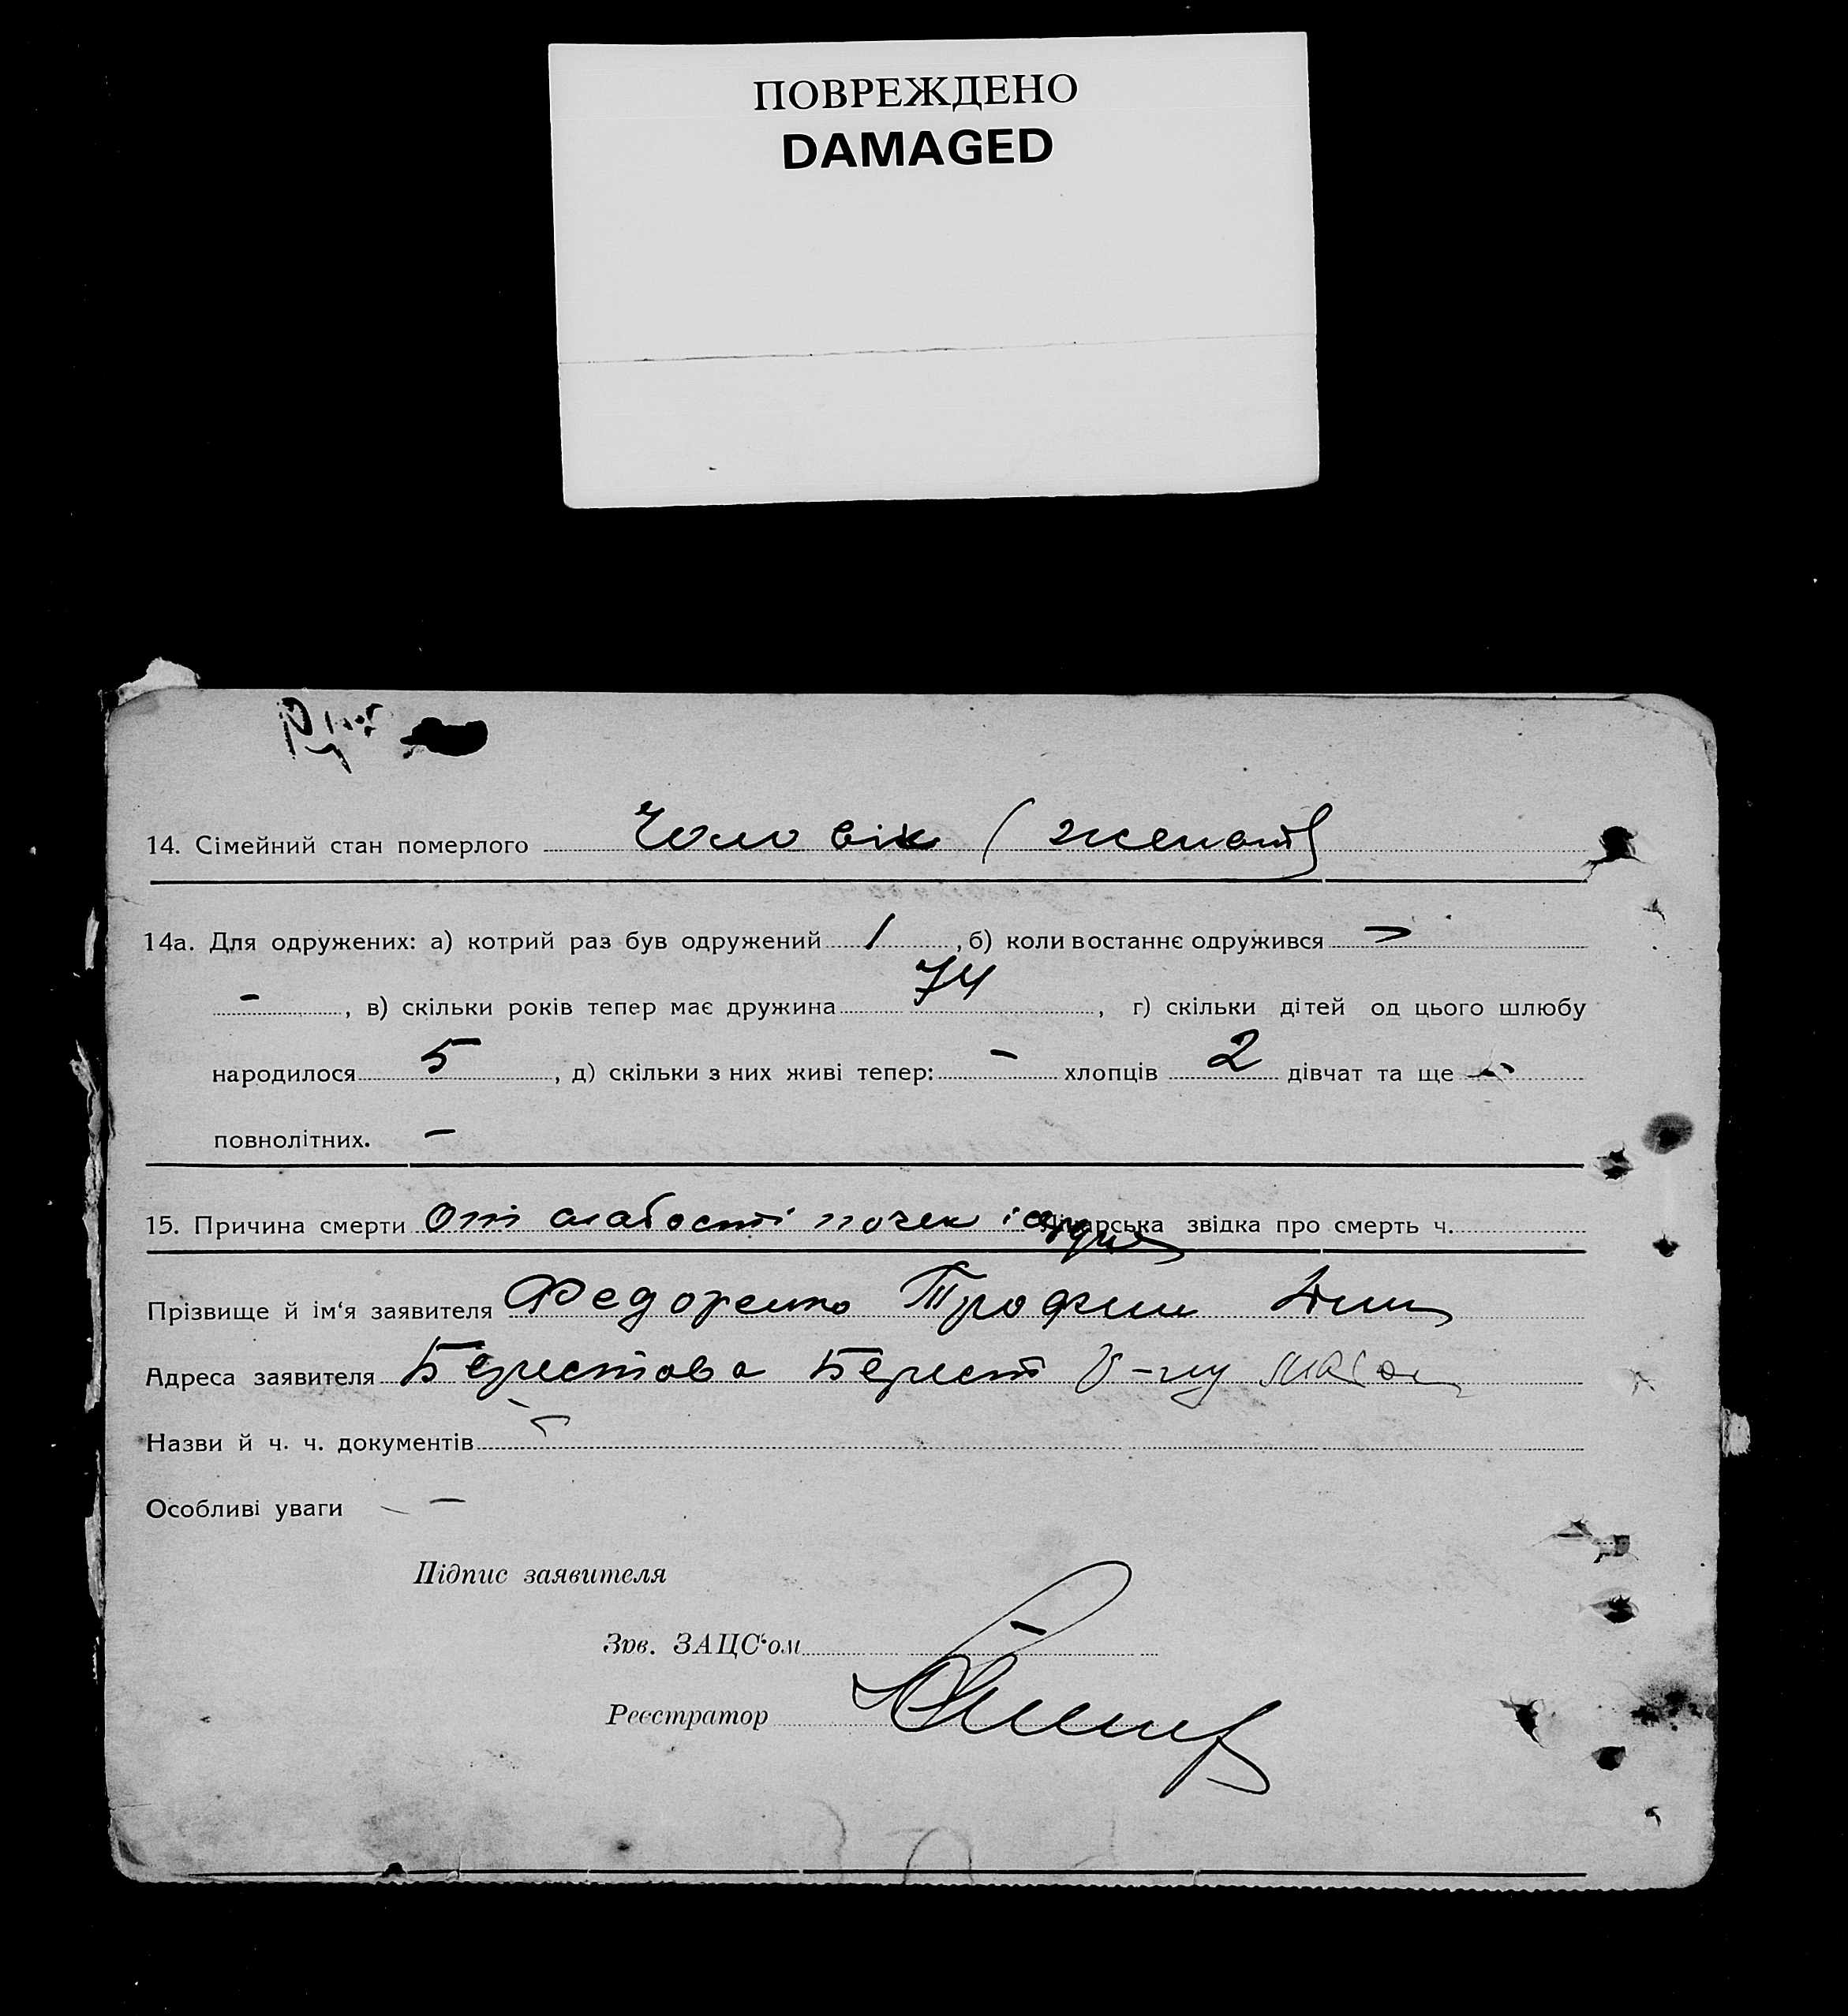 ПОВРЕЖДЕНО
DAMAGED
14. Сімейний стан померлого Чоловік (женат)
14а. Для одружених: а) котрий раз був одружений 1, б) коли востаннє одружився —
—, в) скільки років тепер має дружина 74, г) скільки дітей од цього шлюбу
народилося 5, д) скільки з них живі тепер: — хлопців 2 дівчат та ще —
повнолітних. —
15. Причина смерти От слабості почек і Лікарська звідка про смерть ч.
Прізвище й ім'я заявителя Федоренко Трофим
Адреса заявителя Берестова Берест
Назви й ч. ч. документів —
Особливі уваги —
Підпис заявителя
Зав. ЗАЦС'ом
Реєстратор